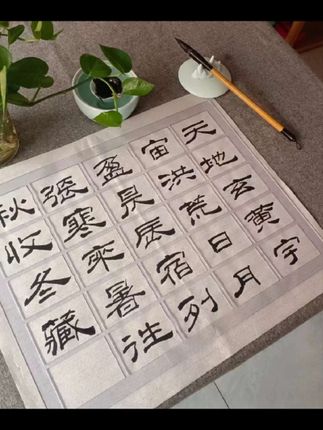 天地玄黄宇
宙洪荒日月
盈昃辰宿列
張寒來暑往
秋收冬藏